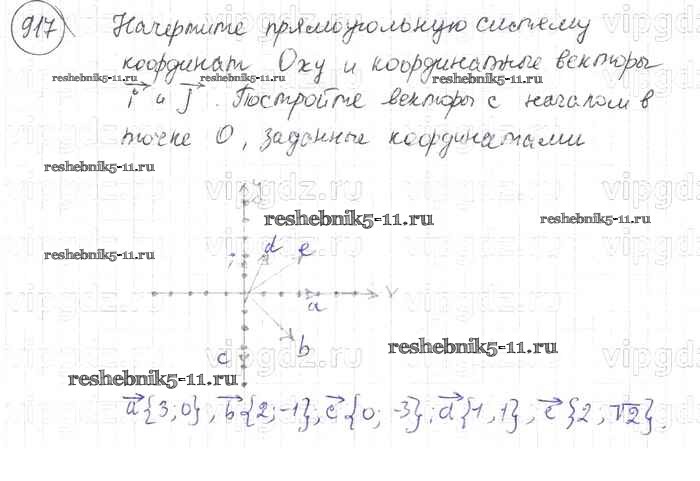 917 Начертите прямоугольную систему
координат Oxy и координатные векторы
reshebnik5-11.ru reshebnik5-11.ru reshebnik5-11.ru
i и j. Постройте векторы с началом в
точке O, заданные координатами
reshebnik5-11.ru
vipgdz.ru
y
reshebnik5-11.ru reshebnik5-11.ru
d e
reshebnik5-11.ru
a
c b
reshebnik5-11.ru
reshebnik5-11.ru
a{3;0}, b{2;-1}; c{0; -3}; d{1,1}, e{2; √2}.